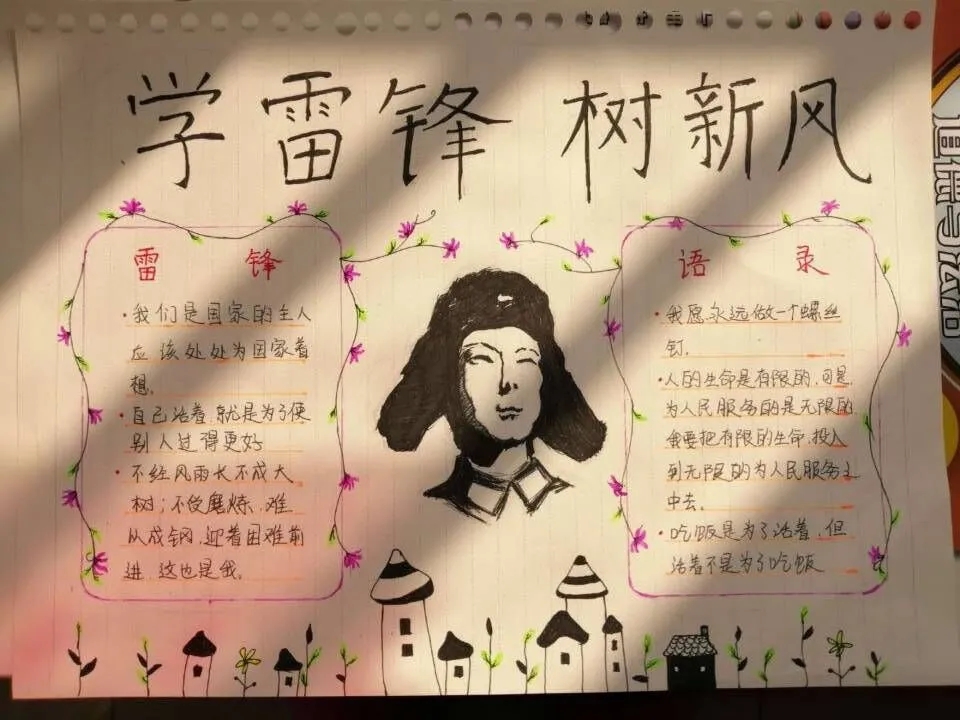 学雷锋 树新风
雷 锋
·我们是国家的主人
应该处处为国家着
想。
·自己活着,就是为了使
别人过得更好
·不经风雨长不成大
树;不受磨炼,难
从成钢,迎着困难前
进,这也是我。
语 录
·我愿永远做一个螺丝
钉。
·人的生命是有限的,可是
为人民服务的是无限的
我要把有限的生命,投入
到无限的为人民服务之
中去。
·吃饭是为了活着,但
活着不是为了吃饭
道德与法治